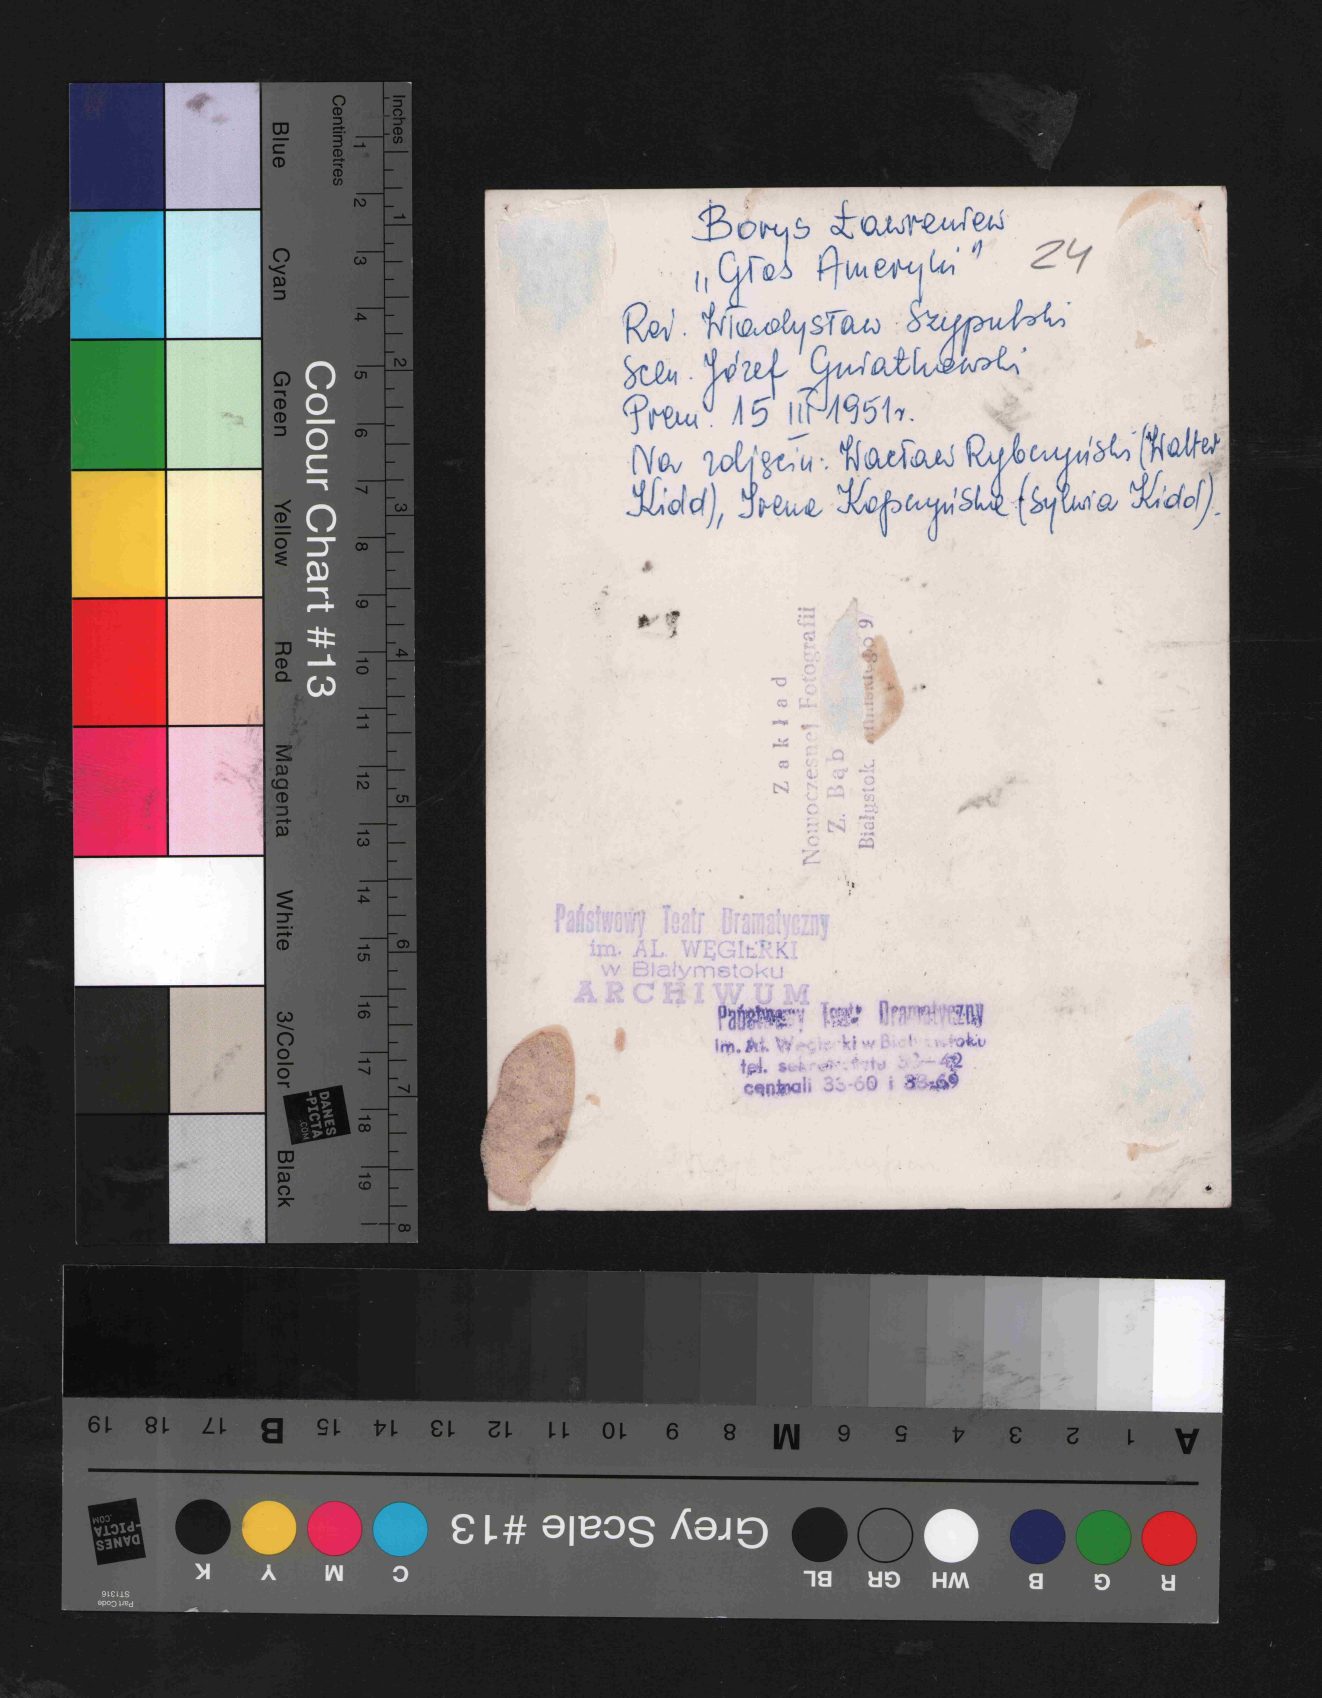 Borys Ławreniew
„Głos Ameryki"
24
Reż. Władysław Szypulski
Scen. Józef Gwiatkowski
Prem. 15 III 1951r.
Na zdjęciu: Wacław Rybczyński (Walter
Kidd), Irena Kopczyńska (Sylwia Kidd).
Zakład
Nowoczesnej Fotografii
Z. Bąb
Białystok 9
Państwowy Teatr Dramatyczny
im. AL. WĘGIERKI
w Białymstoku
ARCHIWUM
Państwowy Teatr Dramatyczny
im. Al. Węgierki w Białymstoku
tel. sekretariatu 33-42
centrali 33-60 i 33-69
Colour Chart #13
Blue
Cyan
Green
Yellow
Red
Magenta
White
3/Color
Black
Centimetres
1 2 3 4 5 6 7 8 9 10 11 12 13 14 15 16 17 18 19
Inches
1 2 3 4 5 6 7 8
DANES
-PICTA
.COM
Grey Scale #13
A 1 2 3 4 5 6 M 8 9 10 11 12 13 14 15 B 17 18 19
R G B WH GR BL
C M Y K
DANES
-PICTA
.COM
Part Code
ST1316